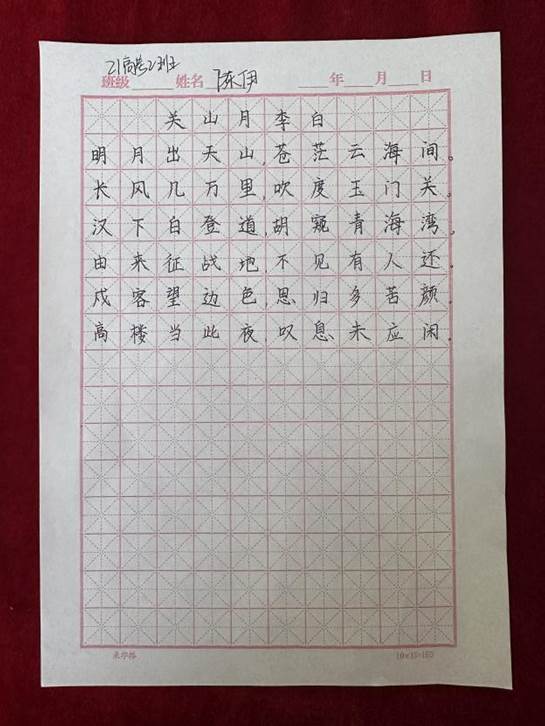 21高考2班
班级 姓名 陈伊 年 月 日
关山月李白
明月出天山,苍茫云海间。
长风几万里,吹度玉门关。
汉下白登道,胡窥青海湾。
由来征战地,不见有人还。
戍客望边色,思归多苦颜。
高楼当此夜,叹息未应闲。
米字格 10×15=150